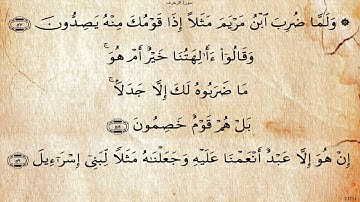 سورة الزخرف
۞ وَلَمَّا ضُرِبَ ٱبْنُ مَرْيَمَ مَثَلًا إِذَا قَوْمُكَ مِنْهُ يَصِدُّونَ ٥٧
وَقَالُوٓا۟ ءَأَٰلِهَتُنَا خَيْرٌ أَمْ هُوَ ۚ
مَا ضَرَبُوهُ لَكَ إِلَّا جَدَلًۢا ۚ
بَلْ هُمْ قَوْمٌ خَصِمُونَ ٥٨
إِنْ هُوَ إِلَّا عَبْدٌ أَنْعَمْنَا عَلَيْهِ وَجَعَلْنَٰهُ مَثَلًا لِّبَنِىٓ إِسْرَٰٓءِيلَ ٥٩